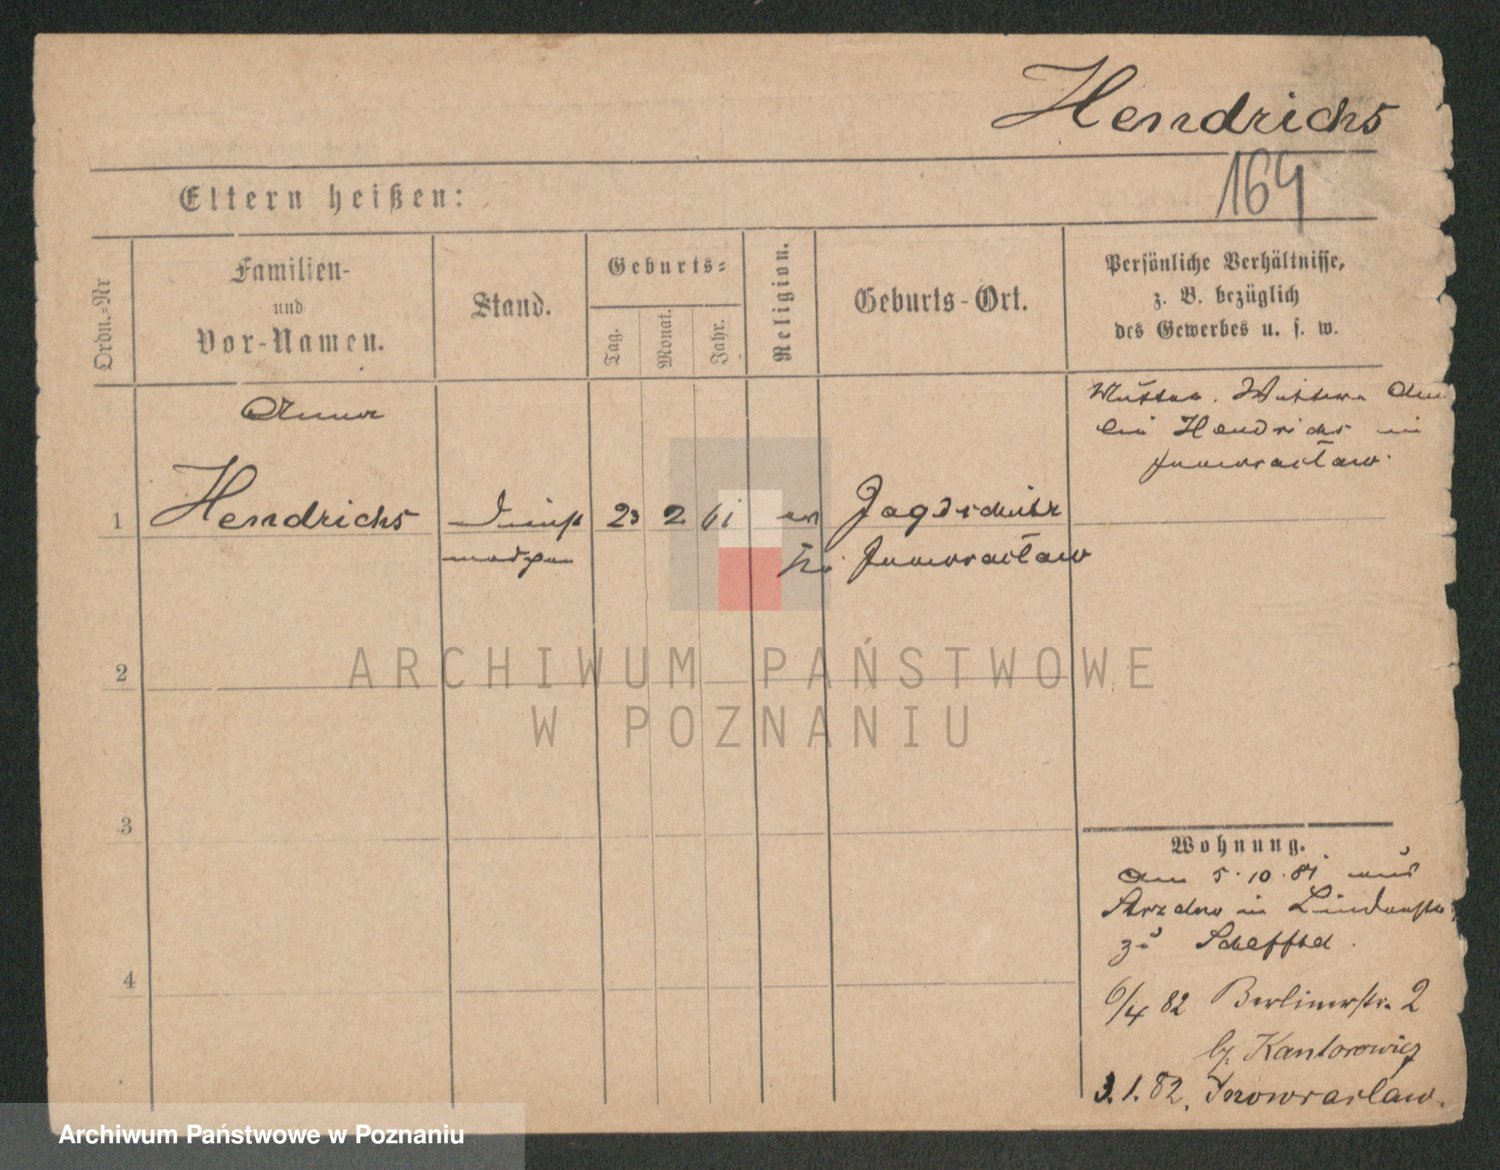 Hendrichs
164
Eltern heißen:
Ordn.=Nr
Familien-
und
Vor-Namen.
Stand.
Geburts=
Tag.
Monat.
Jahr.
Religion.
Geburts-Ort.
Persönliche Verhältnisse,
z. B. bezüglich
des Gewerbes u. s. w.
Anna
Mutter. Wittwe
Hendrichs in
Inowraclaw.
1
Hendrichs
Dienst
23 2 61
ev
Jagdschütz
mädchen
bei Inowraclaw
ARCHIWUM PAŃSTWOWE
W POZNANIU
2
3
4
Wohnung.
Am 5.10.81 aus
in Lindenstr
zu
6/4 82 Berlinerstr. 2
b/. Kantorowicz
3.1.82. Inowraclaw.
Archiwum Państwowe w Poznaniu